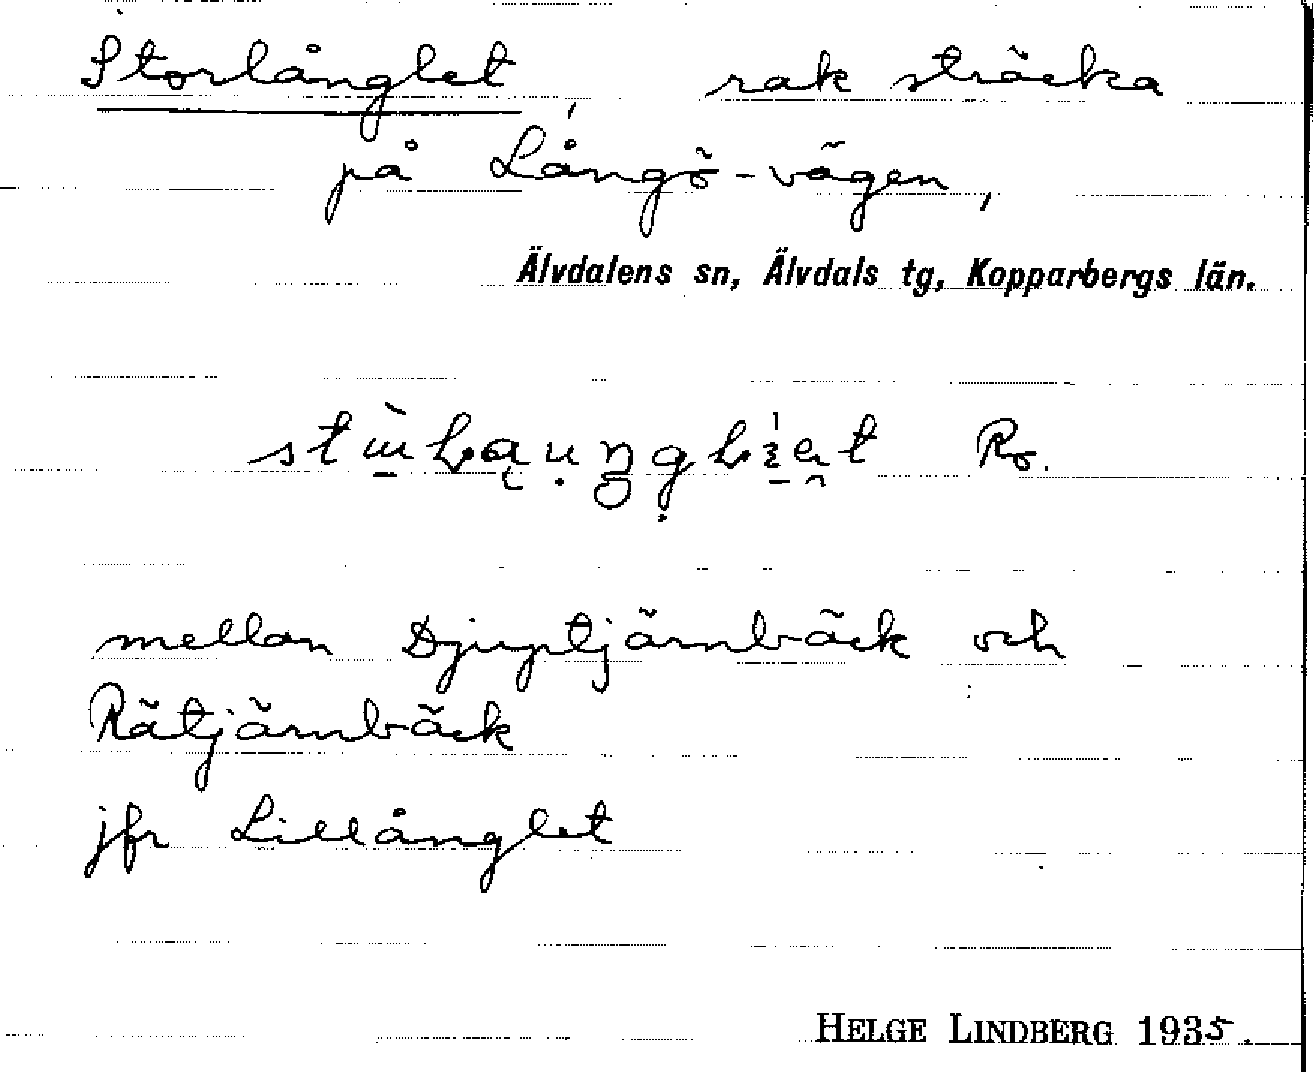 Storlånglet, rak sträcka
på Långö-vägen,
Älvdalens sn, Älvdals tg, Kopparbergs län.
Ro.
mellan Djuptjärnbäck och
Rätjärnbäck
jfr Lillånglet
HELGE LINDBERG 1935.